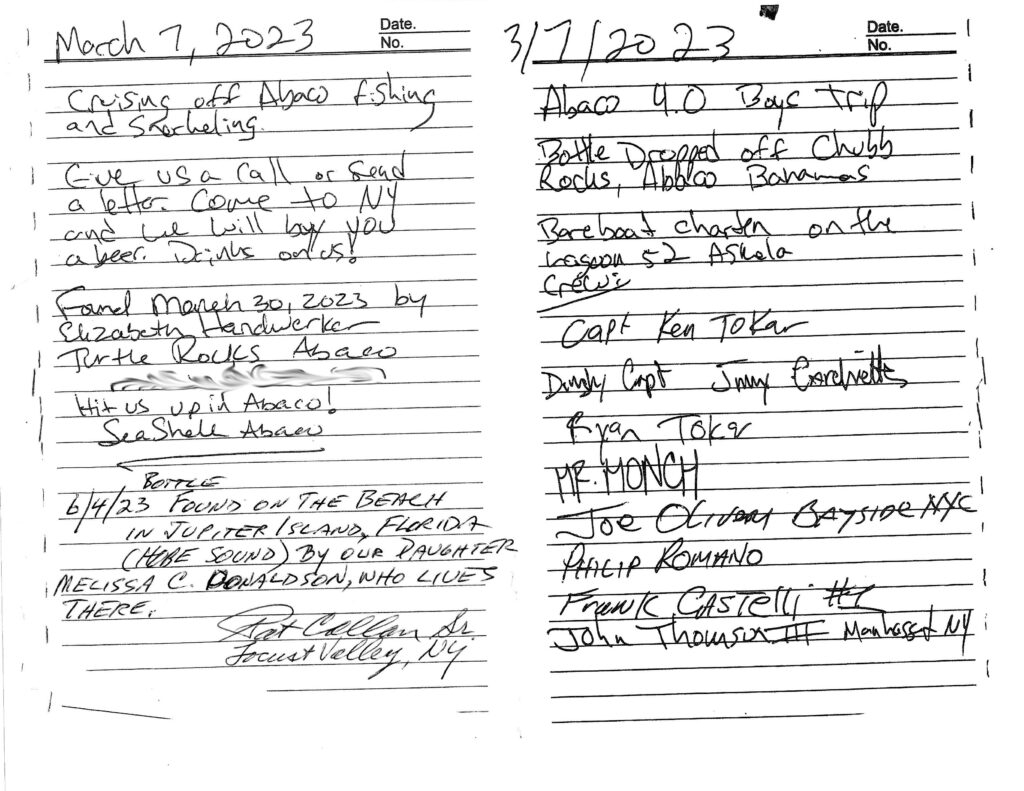 March 7, 2023
Date.
No.
Cruising off Abaco fishing
and Snorkeling.
Give us a call or send
a letter. Come to NY
and we will buy you
a beer. Drinks on us!
Found March 30, 2023 by
Elizabeth Handwerker
Turtle Rocks Abaco
Hit us up in Abaco!
SeaShell Abaco
BOTTLE
6/4/23 FOUND ON THE BEACH
IN JUPITER ISLAND, FLORIDA
(HOBE SOUND) BY OUR DAUGHTER
MELISSA C. DONALDSON, WHO LIVES
THERE.
Pat Callan Sr.
Locust Valley, NY
3/7/2023
Date.
No.
Abaco 4.0 Boys Trip
Bottle Dropped off Chubb
Rocks, Abaco Bahamas
Bareboat charter on the
Lagoon 52 Askela
Crew:
Capt Ken Tokar
Dinghy Capt Jimmy
Ryan Tokar
MR. MONCH
Joe Oliveri BAYSIDE NYC
PHILIP ROMANO
Frank CASTElli #1
John Thomson III Manhasset NY